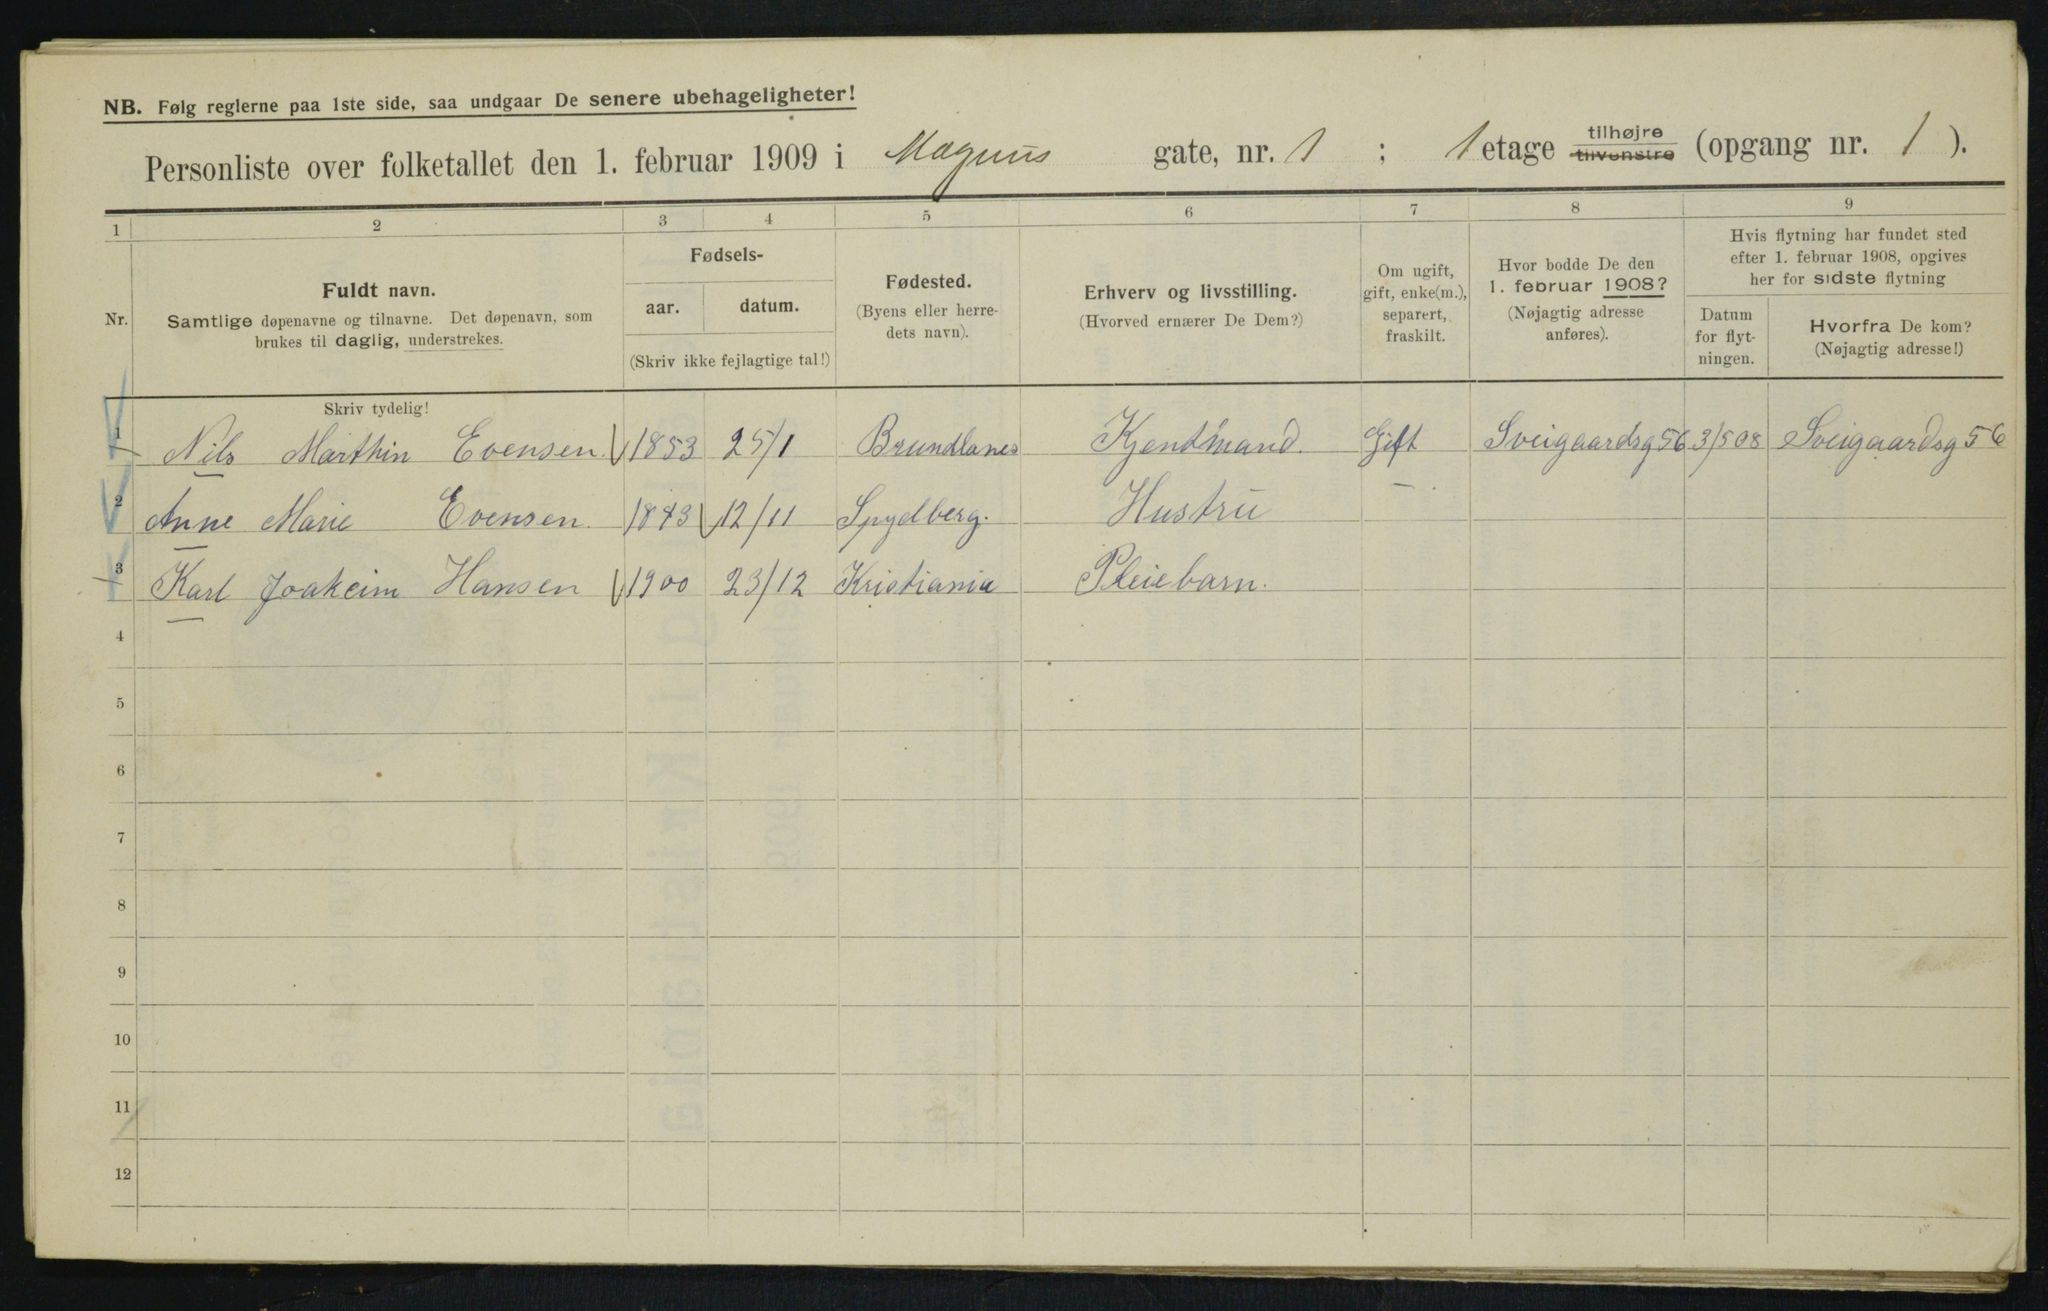 NB. Følg reglerne paa 1ste side, saa undgaar De senere ubehageligheter!
Personliste over folketallet den 1. februar 1909 i Magnus gate, nr. 1 ; 1 etage tilhøjre tilvenstre (opgang nr. 1 ).
1 2 3 4 5 6 7 8 9
Nr.
Fuldt navn.
Samtlige døpenavne og tilnavne. Det døpenavn, som
brukes til daglig, understrekes.
Fødsels-
aar. datum.
(Skriv ikke fejlagtige tal!)
Fødested.
(Byens eller herre-
dets navn).
Erhverv og livsstilling.
(Hvorved ernærer De Dem?)
Om ugift,
gift, enke(m.),
separert,
fraskilt.
Hvor bodde De den
1. februar 1908?
(Nøjagtig adresse
anføres).
Hvis flytning har fundet sted
efter 1. februar 1908, opgives
her for sidste flytning
Datum
for flyt-
ningen.
Hvorfra De kom?
(Nøjagtig adresse!)
Skriv tydelig!
1 Nils Marthin Evensen 1853 25/1 Brundlanes Kjentmand. Gift Sveigaardsg 56 3/5 08 Sveigaardsg 56
2 Anne Marie Evensen. 1843 12/11 Spydberg. Hustru –
3 Karl Joakeim Hansen 1900 23/12 Kristiania Pleiebarn.
4
5
6
7
8
9
10
11
12